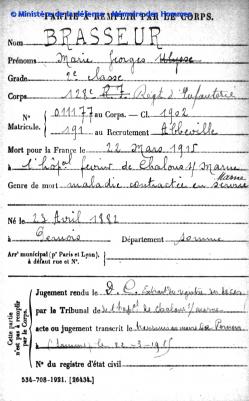 © Ministère de la défense - Mémoire des Hommes
PARTIE A REMPLIR PAR LE CORPS.
Nom BRASSEUR
Prénoms Marie Georges Ulysse
Grade 2e classe
Corps 128e R I Régt d'Infanterie
N° 011177 au Corps. — Cl. 1902
Matricule. 191 au Recrutement Abbeville
Mort pour la France le 22 Mars 1915
à l'hôpal ferme de Chalons s/ Marne
Marne
Genre de mort maladie contractée en service
Né le 23 Avril 1882
à Bernois Département Somme
Arr' municipal (p' Paris et Lyon),
à défaut rue et N°.
Cette partie
n'est pas à remplir
par le Corps.
Jugement rendu le D. C.
par le Tribunal de
acte ou jugement transcrit le
(Somme) le 22-3-1915
N° du registre d'état civil
534-708-1921. [26434.]